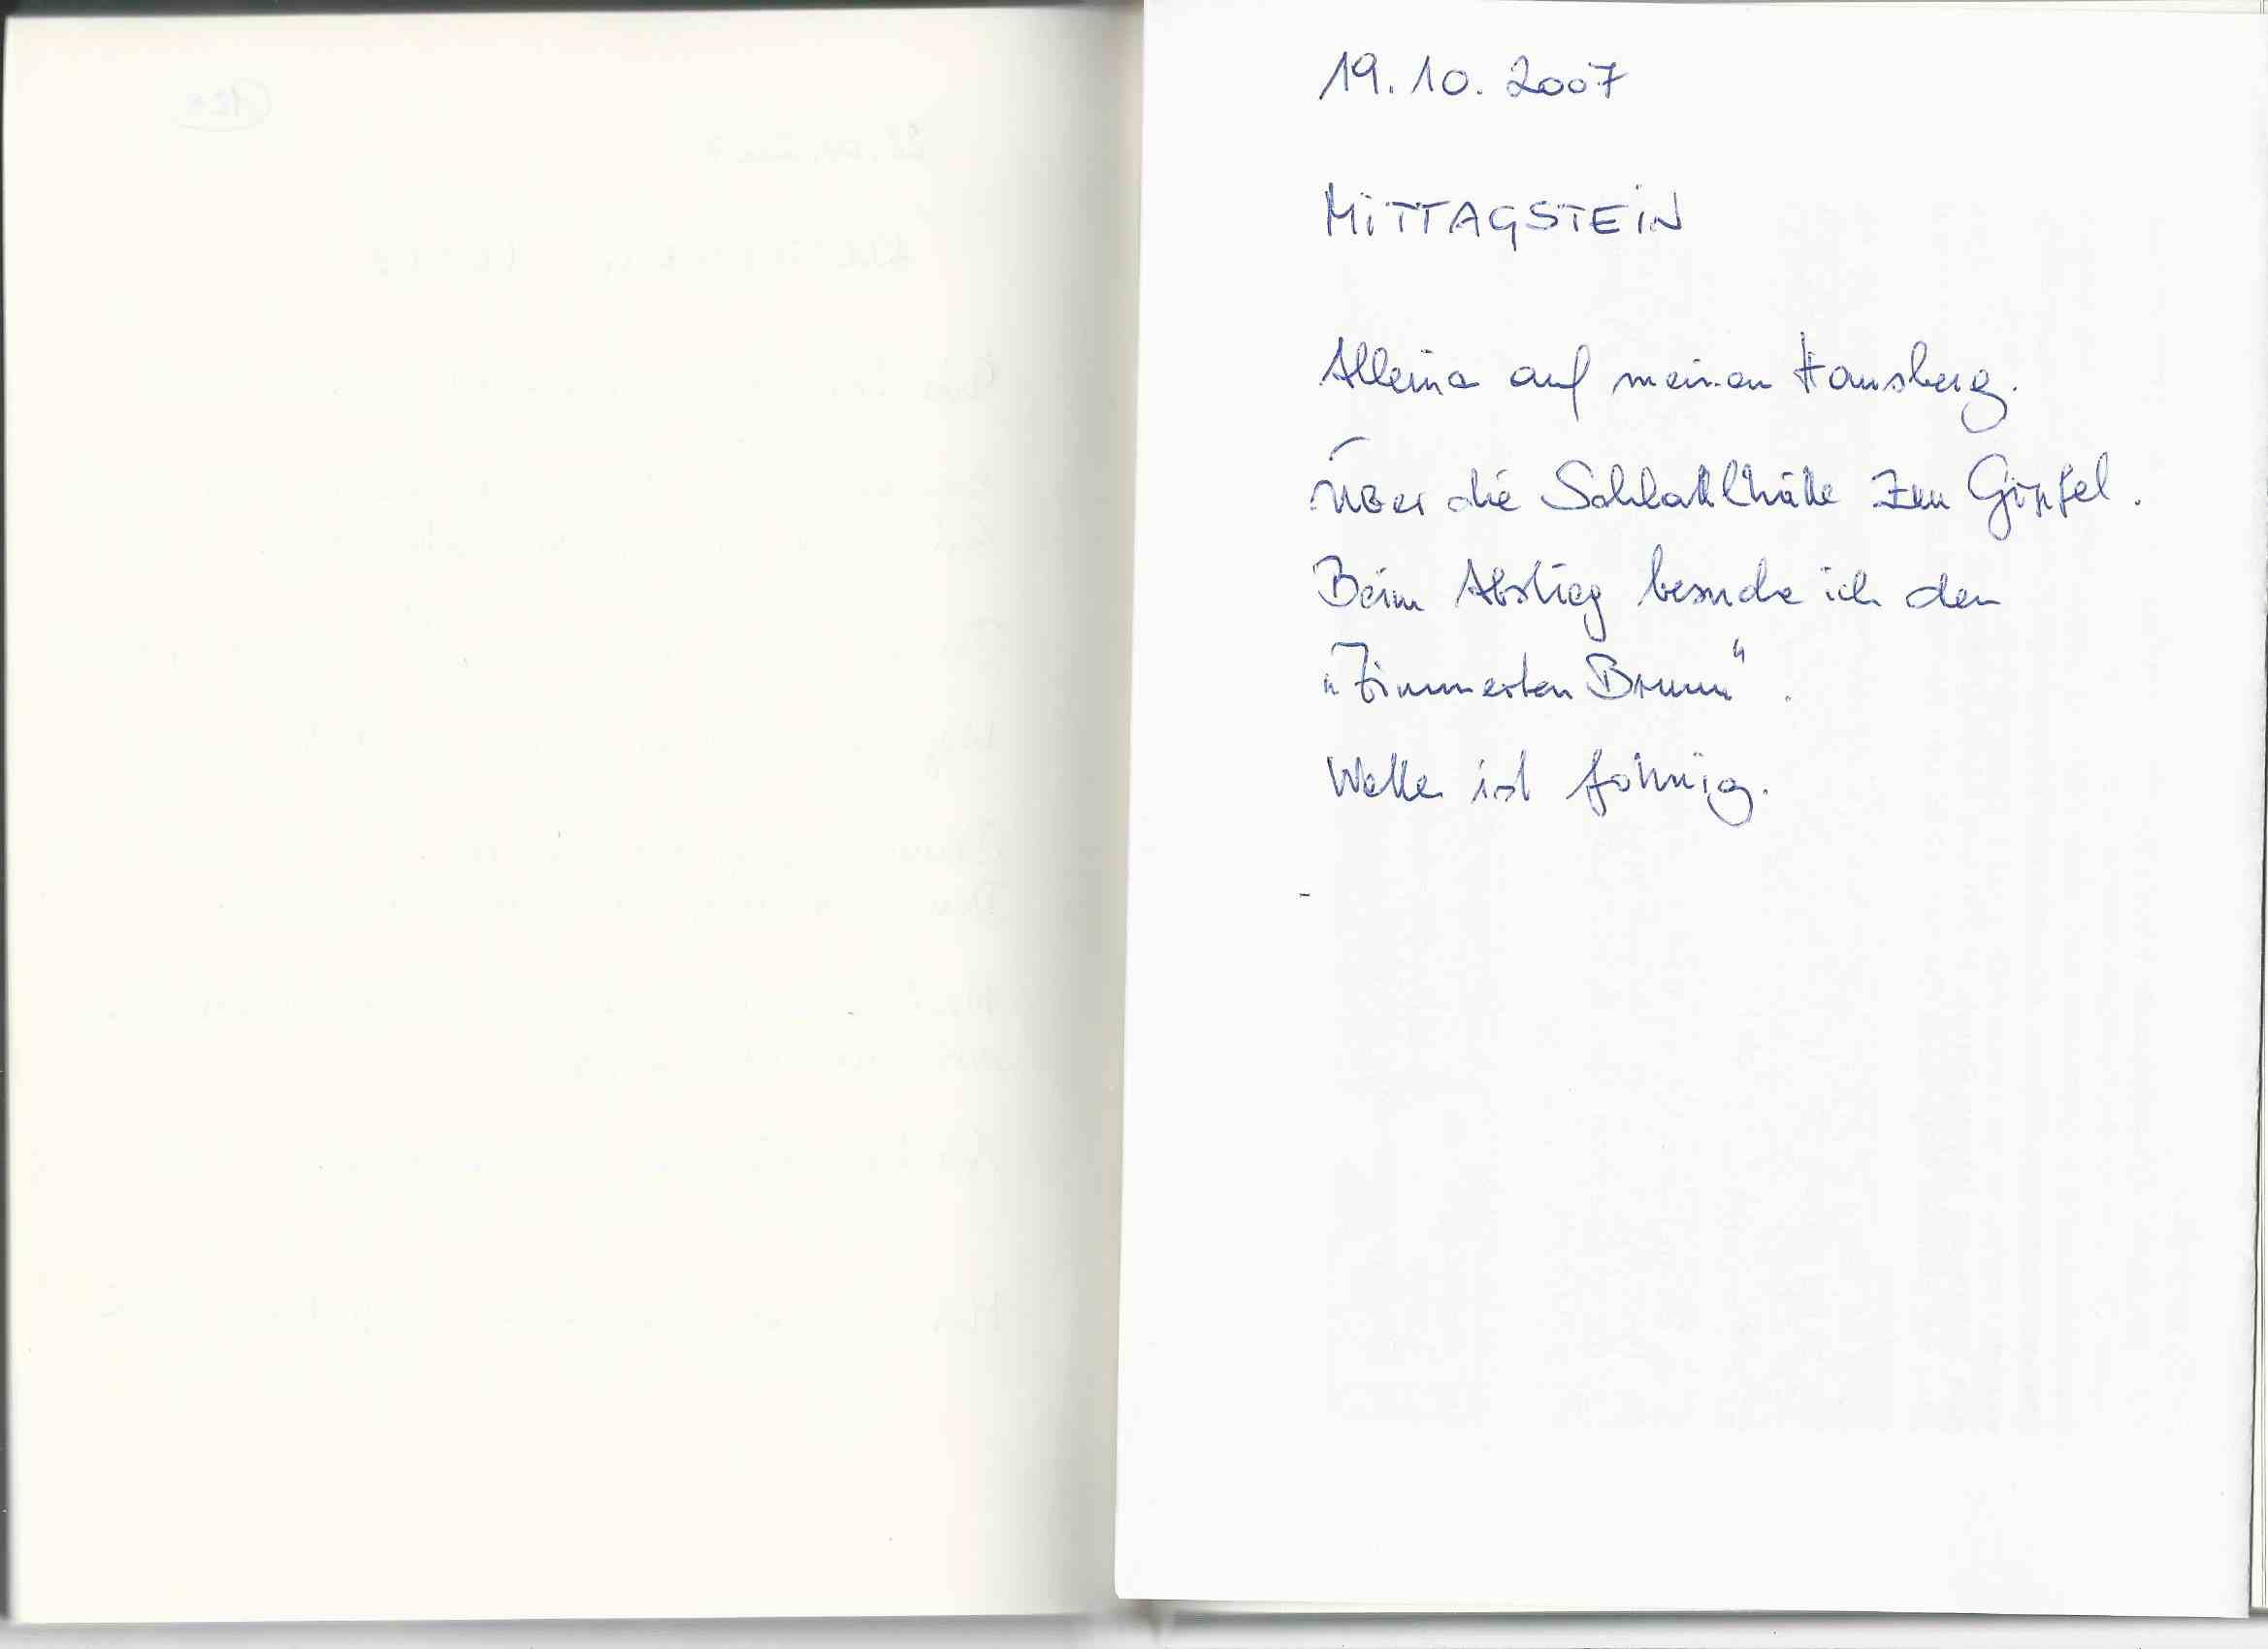 19.10.2007
MITTAGSTEIN
Alleine auf meinen Hausberg.
Über die Schlatthütte zum Gipfel.
Beim Abstieg besuche ich den
"Zimmerten Brunn".
Wetter ist föhnig.